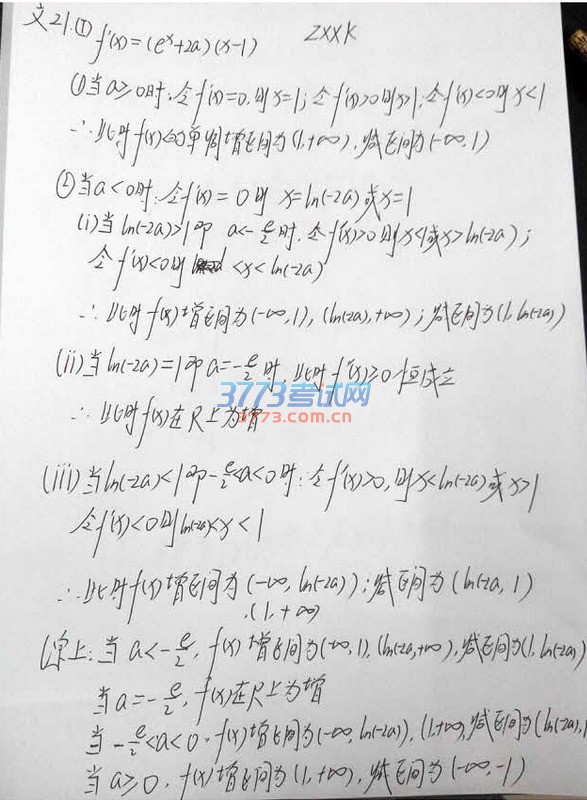 文21.(1) f'(x)=(eˣ+2a)(x-1) ZXXK
①当a≥0时,令f'(x)=0,则x=1;令f'(x)>0则x>1,令f'(x)<0则x<1
∴此时f(x)的单调增区间为(1,+∞),减区间为(-∞,1)
②当a<0时:令f'(x)=0则 x=ln(-2a)或x=1
(i)当ln(-2a)>1即 a<-e/2时,令f'(x)>0则x<1或x>ln(-2a);
令f'(x)<0则 <x<ln(-2a)
∴此时f(x)增区间为(-∞,1),(ln(-2a),+∞);减区间为(1,ln(-2a))
(ii)当ln(-2a)=1即a=-e/2时,此时f'(x)≥0恒成立
3773考试网
3773.com.cn
∴此时f(x)在R上为增
(iii)当ln(-2a)<1即-e/2<a<0时:令f'(x)>0,则x<ln(-2a)或x>1
令f'(x)<0则ln(-2a)<x<1
∴此时f(x)增区间为(-∞,ln(-2a));减区间为(ln(-2a,1)
,(1,+∞)
综上:当a<-e/2,f(x)增区间为(-∞,1),(ln(-2a,+∞),减区间为(1,ln(-2a))
当a=-e/2,f(x)在R上为增
当-e/2<a<0,f(x)增区间为(-∞,ln(-2a)),(1,+∞),减区间为(ln(-2a),1
当a≥0,f(x)增区间为(1,+∞),减区间为(-∞,-1)